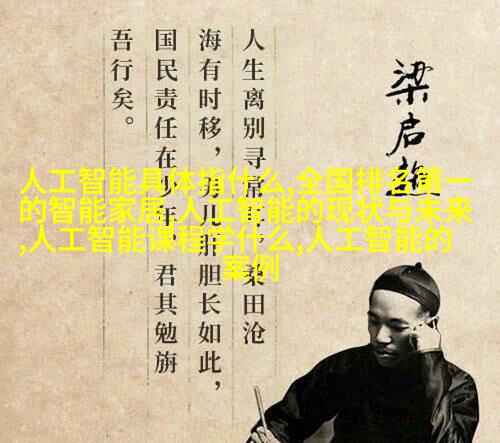 人生离别寻常，桑田沧
海有时移，男儿肝胆长如此，
国民责任在少年，君其勉旃
吾行矣。
梁启超
人工智能具体指什么,全国排名第一
的智能家居,人工智能的现状与未来
,人工智能课程学什么,人工智能的
案例